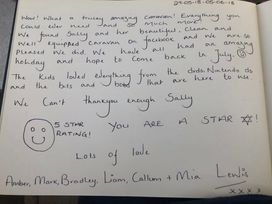 29-05-18 - 05-06-18
Wow! What a truley amazing caravan! Everything you
could ever need and so much more!
We found Sally and her beautiful, clean and
well equipped caravan on facebook and we are so
pleased we did. We have all had an amazing
holiday and hope to come back in July.
The kids loved everything from the dvds, Nintendo ds
and the bits and bobs that are here to use.
We Can't thankyou enough Sally
5 STAR
RATING!
YOU ARE A STAR!
Lots of love
Amber, Mark, Bradley, Liam, Callum + Mia Lewis
xxxx